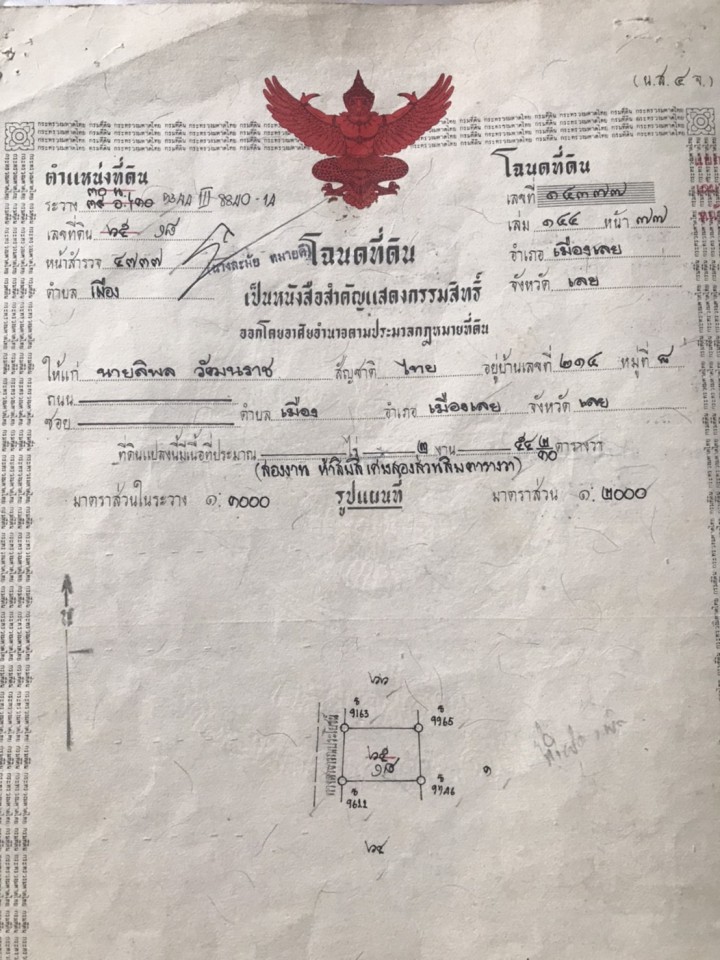 (น.ส. ๔ จ.)
ตำแหน่งที่ดิน
ระวาง
เลขที่ดิน ๖๕
หน้าสำรวจ ๔๗๓๗
ตำบล เมือง
โฉนดที่ดิน
เลขที่ ๑๔๓๗๗
เล่ม ๑๔๔ หน้า ๗๗
อำเภอ เมืองเลย
จังหวัด เลย
โฉนดที่ดิน
เป็นหนังสือสำคัญแสดงกรรมสิทธิ์
ออกโดยอาศัยอำนาจตามประมวลกฎหมายที่ดิน
ให้แก่ นายลิพล วัฒนราช สัญชาติ ไทย อยู่บ้านเลขที่ ๒๑๔ หมู่ที่ ๘
ถนน
ซอย ตำบล เมือง อำเภอ เมืองเลย จังหวัด เลย
ที่ดินแปลงนี้มีเนื้อที่ประมาณ ไร่ ๒ งาน ๕๔ ๒/๑๐ ตารางวา
(สองงาน ห้าสิบสี่เศษสองส่วนสิบตารางวา)
มาตราส่วนในระวาง ๑: ๑๐๐๐ รูปแผนที่ มาตราส่วน ๑: ๒๐๐๐
น
๖๖
ข ข
9163 9965
ทางสาธารณประโยชน์
๖๕
๑
ข ข
9611
๖๔